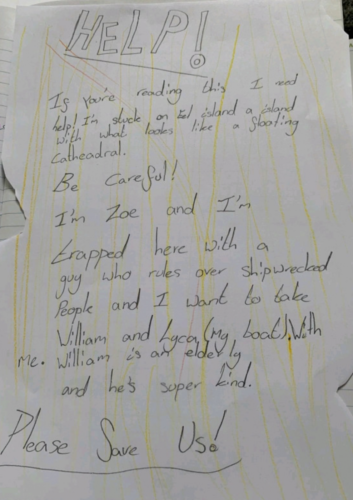 HELP!
If you're reading this I need
help! I'm stuck on a island
with what looks like a floating
Catheadral.
Be Careful!
I'm Zoe and I'm
trapped here with a
guy who rules over shipwrecked
People and I want to take
William and Lyca (My boat). With
me. William is an elderly
and he's super kind.
Please Save Us!